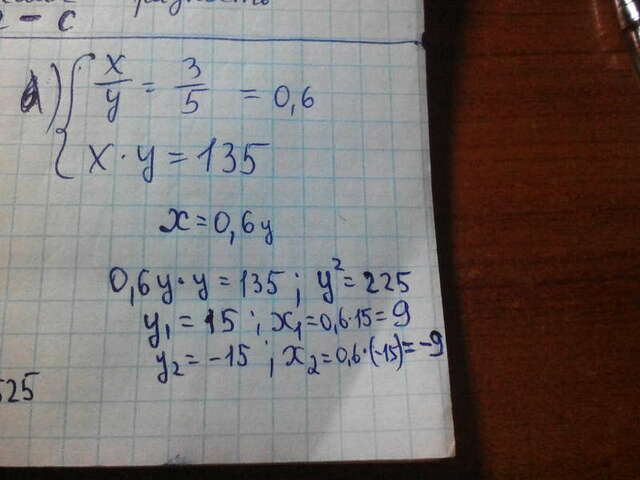 разность
- c
a) { x/y = 3/5 = 0,6
x · y = 135
x = 0,6y
0,6y · y = 135 ; y² = 225
y₁ = 15 ; x₁ = 0,6·15 = 9
y₂ = -15 ; x₂ = 0,6·(-15) = -9
525